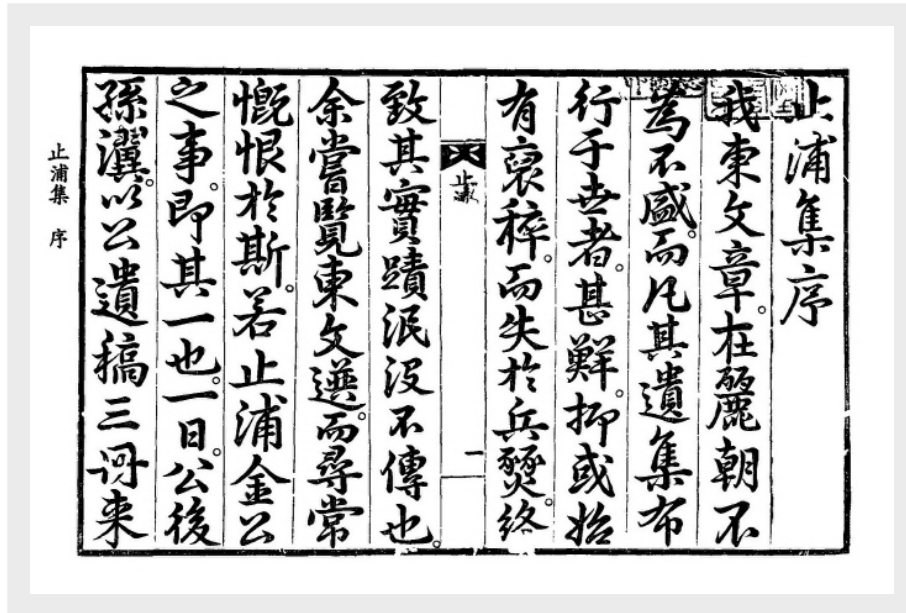 止浦集序
我東文章。在麗朝不
為不盛。而凡其遺集布
行于世者。甚鮮。抑或始
有裒稡。而失於兵燹。終
止浦
一
致其實蹟泯沒不傳也。
余嘗覽東文選。而尋常
慨恨於斯。若止浦金公
之事。即其一也。一日。公後
孫瀷。以公遺稿三冊来
止浦集 序